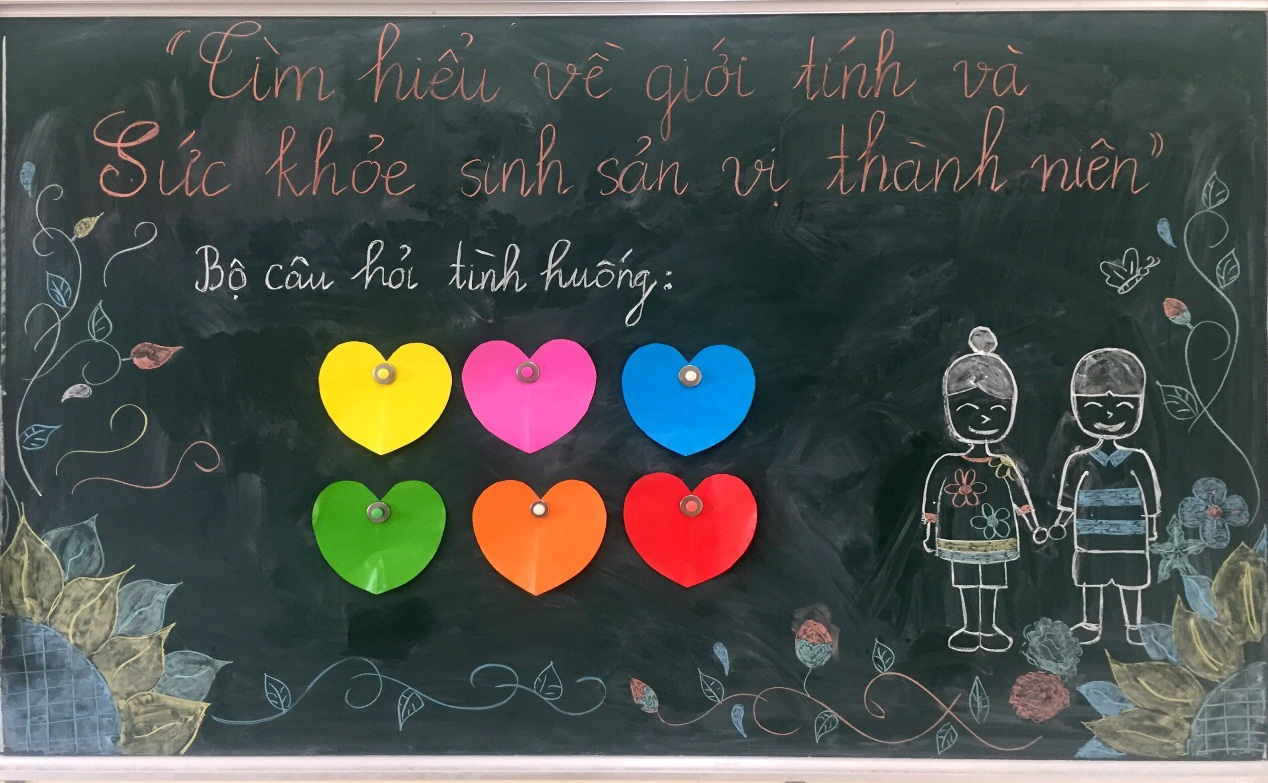 “Tìm hiểu về giới tính và
Sức khỏe sinh sản vị thành niên”
Bộ câu hỏi tình huống: